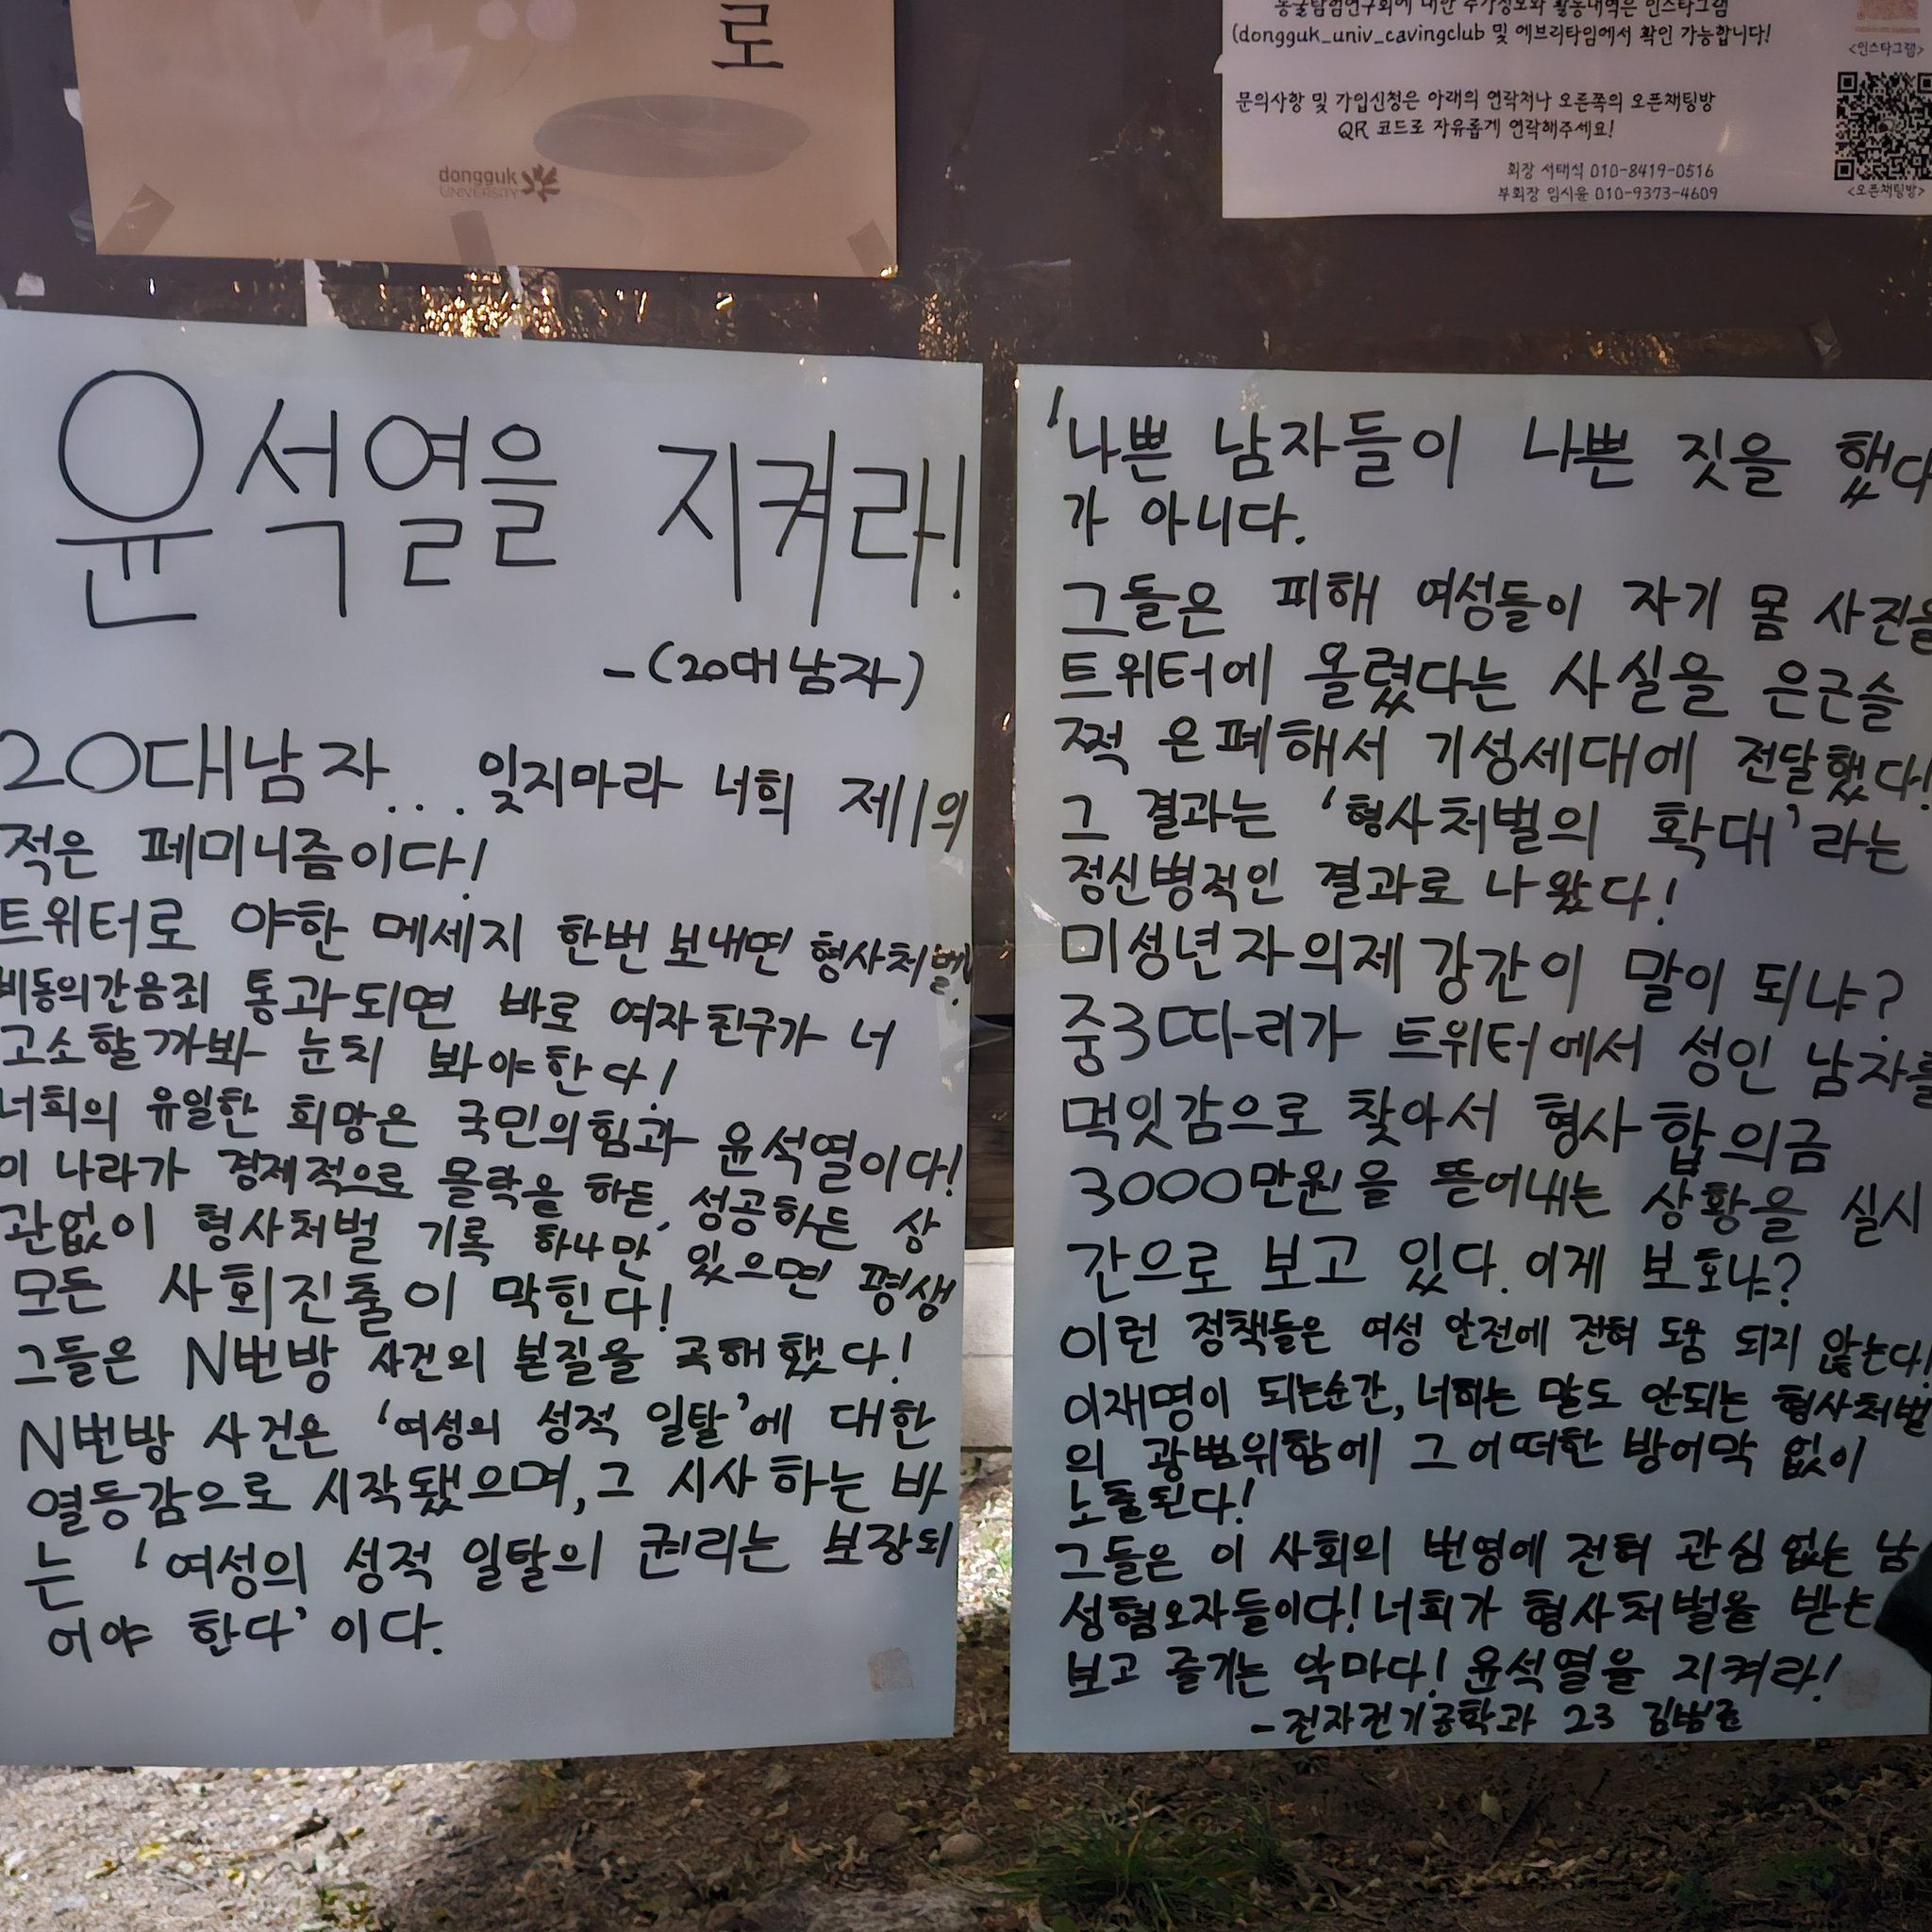 로
dongguk
UNIVERSITY
동굴탐험연구회에 대한 추가정보와 활동내역은 인스타그램
(dongguk_univ_cavingclub 및 에브리타임에서 확인 가능합니다!
<인스타그램>
문의사항 및 가입신청은 아래의 연락처나 오른쪽의 오픈채팅방
QR 코드로 자유롭게 연락해주세요!
회장 서태석 010-8419-0516
부회장 임시윤 010-9373-4609
<오픈채팅방>
윤석열을 지켜라!
-(20대남자)
20대남자... 잊지마라 너희 제1의
적은 페미니즘이다!
트위터로 야한 메세지 한번 보내면 형사처벌!
비동의간음죄 통과되면 바로 여자친구가 너
고소할까봐 눈치 봐야한다!
너희의 유일한 희망은 국민의힘과 윤석열이다!
이 나라가 경제적으로 몰락을 하든, 성공하든 상
관없이 형사처벌 기록 하나만 있으면 평생
모든 사회진출이 막힌다!
그들은 N번방 사건의 본질을 곡해했다!
N번방 사건은 '여성의 성적 일탈'에 대한
열등감으로 시작됐으며, 그 시사하는 바
는 '여성의 성적 일탈의 권리는 보장되
어야 한다'이다.
'나쁜 남자들이 나쁜 짓을 했다
가 아니다.
그들은 피해 여성들이 자기 몸 사진을
트위터에 올렸다는 사실을 은근슬
쩍 은폐해서 기성세대에 전달했다!
그 결과는 '형사처벌의 확대'라는
정신병적인 결과로 나왔다!
미성년자의제강간이 말이 되냐?
중3따리가 트위터에서 성인 남자를
먹잇감으로 찾아서 형사합의금
3000만원을 뜯어내는 상황을 실시
간으로 보고 있다. 이게 보호냐?
이런 정책들은 여성 안전에 전혀 도움 되지 않는다!
이재명이 되는순간, 너희는 말도 안되는 형사처벌
의 광범위함에 그 어떠한 방어막 없이
노출된다!
그들은 이 사회의 번영에 전혀 관심 없는 남
성혐오자들이다! 너희가 형사처벌을 받는
보고 즐기는 악마다! 윤석열을 지켜라!
-전자전기공학과 23 김범준